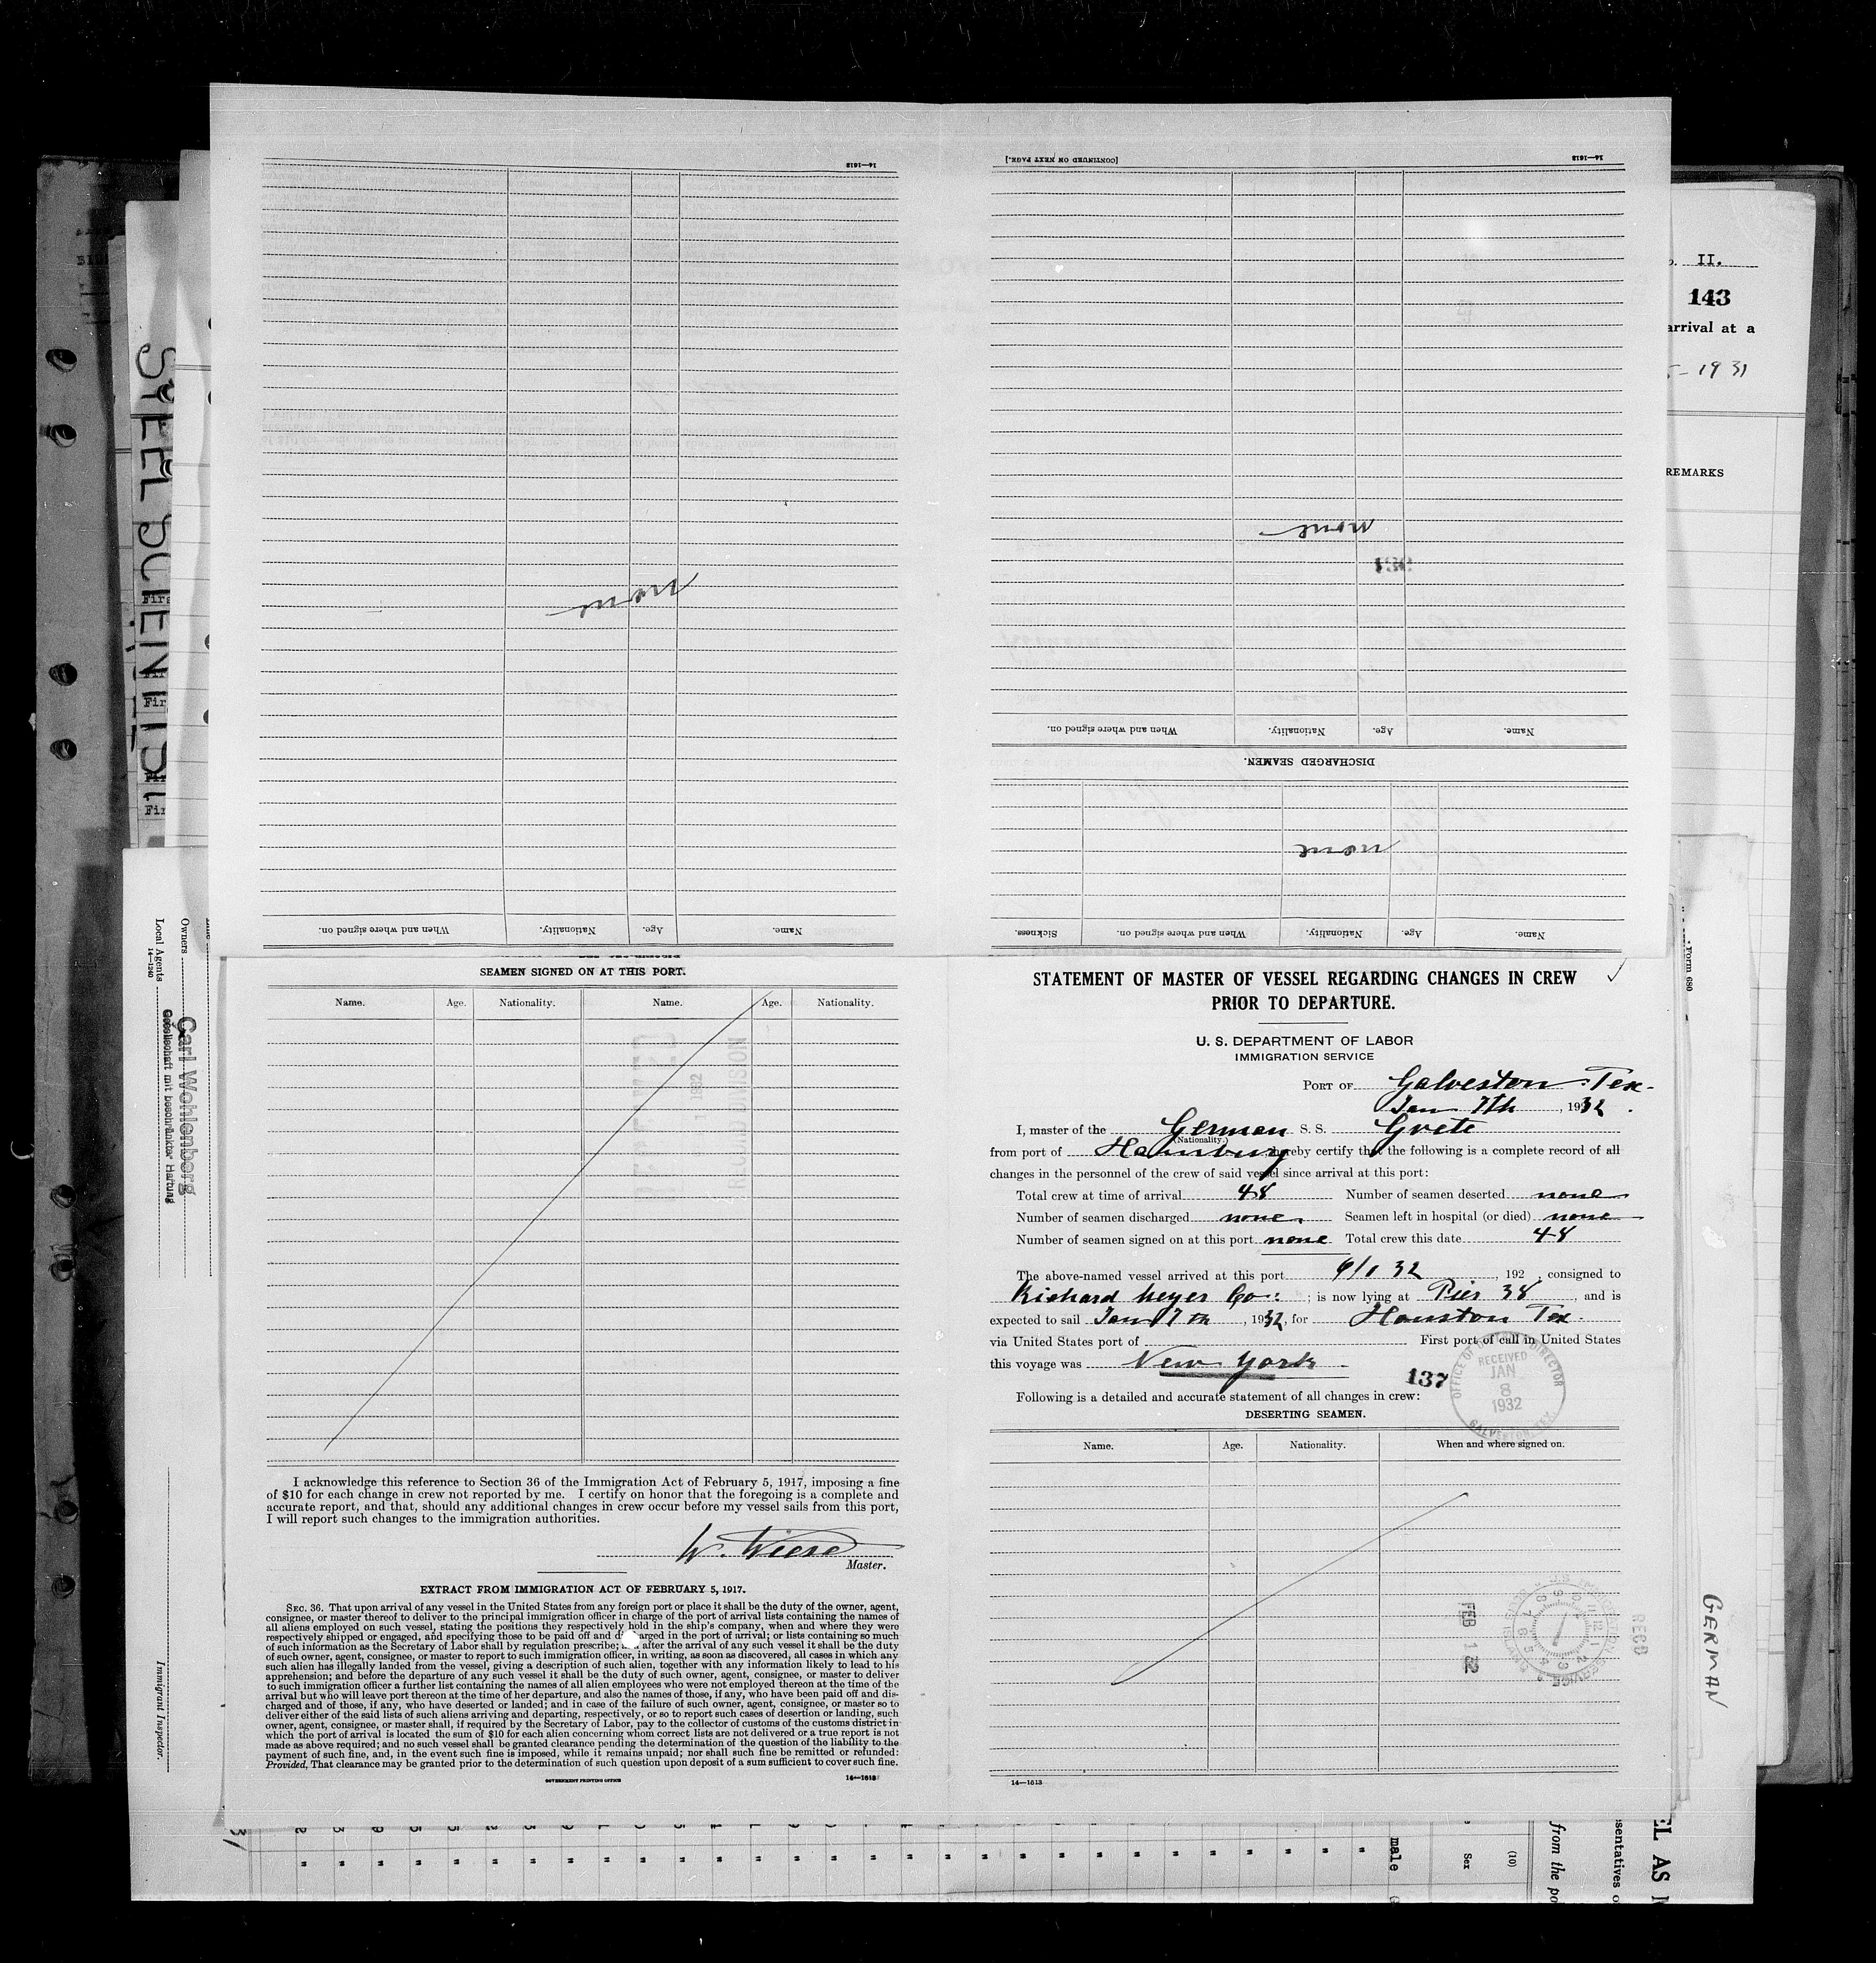 14—1613
none
When and where signed on.
Nationality.
Age.
Name.
[CONTINUED ON NEXT PAGE.]
14—1613
none
Name.
Age.
Nationality.
When and where signed on.
DISCHARGED SEAMEN.
none
Name.
Age.
Nationality.
When and where signed on.
Sickness.
II.
143
arrival at a
1931
REMARKS
Owners
Local Agents
14—1240
Carl Wohlenberg
Gesellschaft mit beschränkter Haftung
Immigrant Inspector.
SEAMEN SIGNED ON AT THIS PORT.
Name. Age. Nationality. Name. Age. Nationality.
I acknowledge this reference to Section 36 of the Immigration Act of February 5, 1917, imposing a fine
of $10 for each change in crew not reported by me. I certify on honor that the foregoing is a complete and
accurate report, and that, should any additional changes in crew occur before my vessel sails from this port,
I will report such changes to the immigration authorities.
W. Wiese
Master.
EXTRACT FROM IMMIGRATION ACT OF FEBRUARY 5, 1917.
SEC. 36. That upon arrival of any vessel in the United States from any foreign port or place it shall be the duty of the owner, agent,
consignee, or master thereof to deliver to the principal immigration officer in charge of the port of arrival lists containing the names of
all aliens employed on such vessel, stating the positions they respectively hold in the ship's company, when and where they were
respectively shipped or engaged, and specifying those to be paid off and discharged in the port of arrival; or lists containing so much
of such information as the Secretary of Labor shall by regulation prescribe; after the arrival of any such vessel it shall be the duty
of such owner, agent, consignee, or master to report to such immigration officer, in writing, as soon as discovered, all cases in which any
such alien has illegally landed from the vessel, giving a description of such alien, together with any information likely to lead to his
apprehension; and before the departure of any such vessel it shall be the duty of such owner, agent, consignee, or master to deliver
to such immigration officer a further list containing the names of all alien employees who were not employed thereon at the time of the
arrival but who will leave port thereon at the time of her departure, and also the names of those, if any, who have been paid off and dis-
charged and of those, if any, who have deserted or landed; and in case of the failure of such owner, agent, consignee, or master so to
deliver either of the said lists of such aliens arriving and departing, respectively, or so to report such cases of desertion or landing, such
owner, agent, consignee, or master shall, if required by the Secretary of Labor, pay to the collector of customs of the customs district in
which the port of arrival is located the sum of $10 for each alien concerning whom correct lists are not delivered or a true report is not
made as above required; and no such vessel shall be granted clearance pending the determination of the question of the liability to the
payment of such fine, and, in the event such fine is imposed, while it remains unpaid; nor shall such fine be remitted or refunded:
Provided, That clearance may be granted prior to the determination of such question upon deposit of a sum sufficient to cover such fine.
GOVERNMENT PRINTING OFFICE 14—1613
STATEMENT OF MASTER OF VESSEL REGARDING CHANGES IN CREW
PRIOR TO DEPARTURE.
U. S. DEPARTMENT OF LABOR
IMMIGRATION SERVICE
PORT OF Galveston Tex.
Jan 7th, 1932.
I, master of the German S. S. Grete
(Nationality.)
from port of Hamburg, hereby certify that the following is a complete record of all
changes in the personnel of the crew of said vessel since arrival at this port:
Total crew at time of arrival 48 Number of seamen deserted none
Number of seamen discharged none. Seamen left in hospital (or died) none
Number of seamen signed on at this port none Total crew this date 48
The above-named vessel arrived at this port 6/1 32, 192 , consigned to
Richard Meyer Co: ; is now lying at Pier 38, and is
expected to sail Jan 7th, 1932, for Houston Tex.
via United States port of First port of call in United States
this voyage was New York
137
Following is a detailed and accurate statement of all changes in crew:
OFFICE OF DISTRICT DIRECTOR
RECEIVED
JAN
8
1932
GALVESTON, TEX.
DESERTING SEAMEN.
Name. Age. Nationality. When and where signed on.
FEB 1 32
REC'D
14—1613
GERMAN
Form 680
male
Sex
(10)
from the